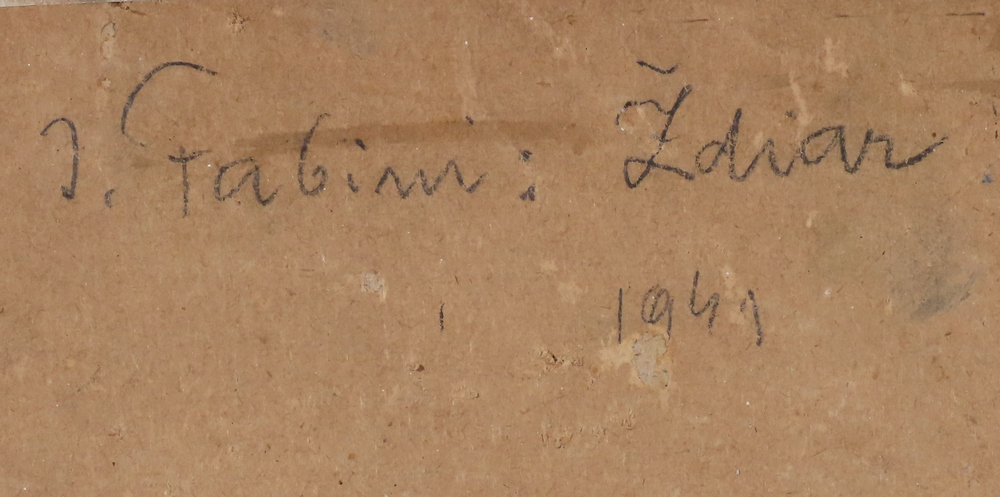 J. Fabini: Ždiar.
1941